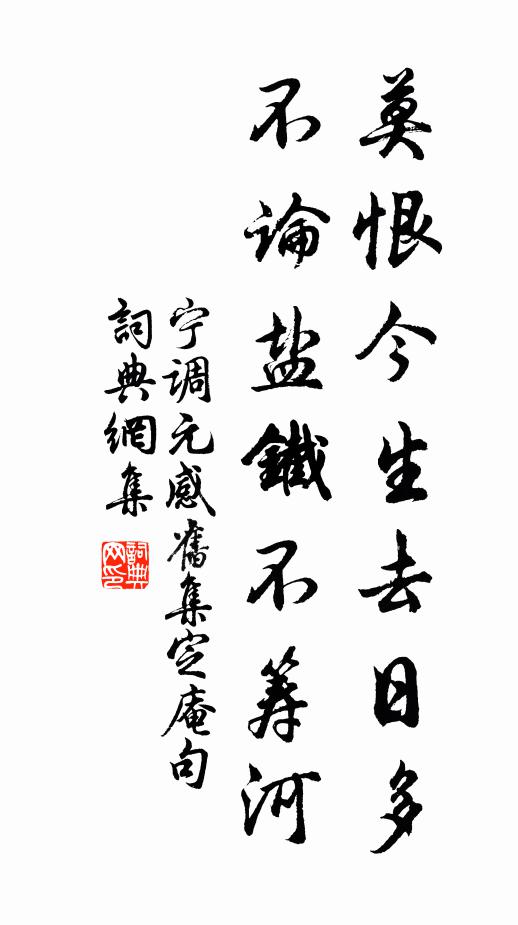 莫恨今生去日多
不論盐鐵不筹河
宁调元感舊集定庵句
詞典網集
詞典网印